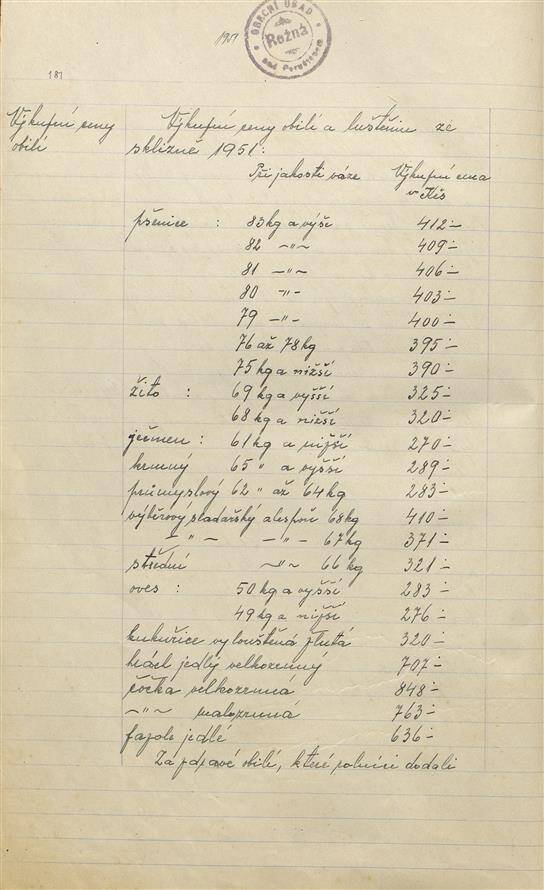 1951
OBECNÍ ÚŘAD
Rožná
nad Pernštejnem
181
Výkupní ceny
obilí
Výkupní ceny obilí a luštěnin ze
sklizně 1951:
Při jakosti váze Výkupní cena
v Kčs
pšenice : 83 kg a výše 412·–
82 –"– 409·–
81 –"– 406·–
80 –"– 403·–
79 –"– 400·–
76 až 78 kg 395·–
75 kg a nižší 390·–
žito : 69 kg a vyšší 325·–
68 kg a nižší 320·–
ječmen : 61 kg a nižší 270·–
krmný 65 " a vyšší 289·–
průmyslový 62 " až 64 kg 283·–
výběrový sladařský alespoň 68 kg 410·–
–"– –"– 67 kg 371·–
střední –"– 66 kg 321·–
oves : 50 kg a vyšší 283·–
49 kg a nižší 276·–
kukuřice vyloušťěná žlutá 320·–
hrách jedlý velkozrnný 707·–
čočka velkozrnná 848·–
–"– malozrnná 763·–
fazole jedlé 636·–
Za zdravé obilí, které rolníci dodali